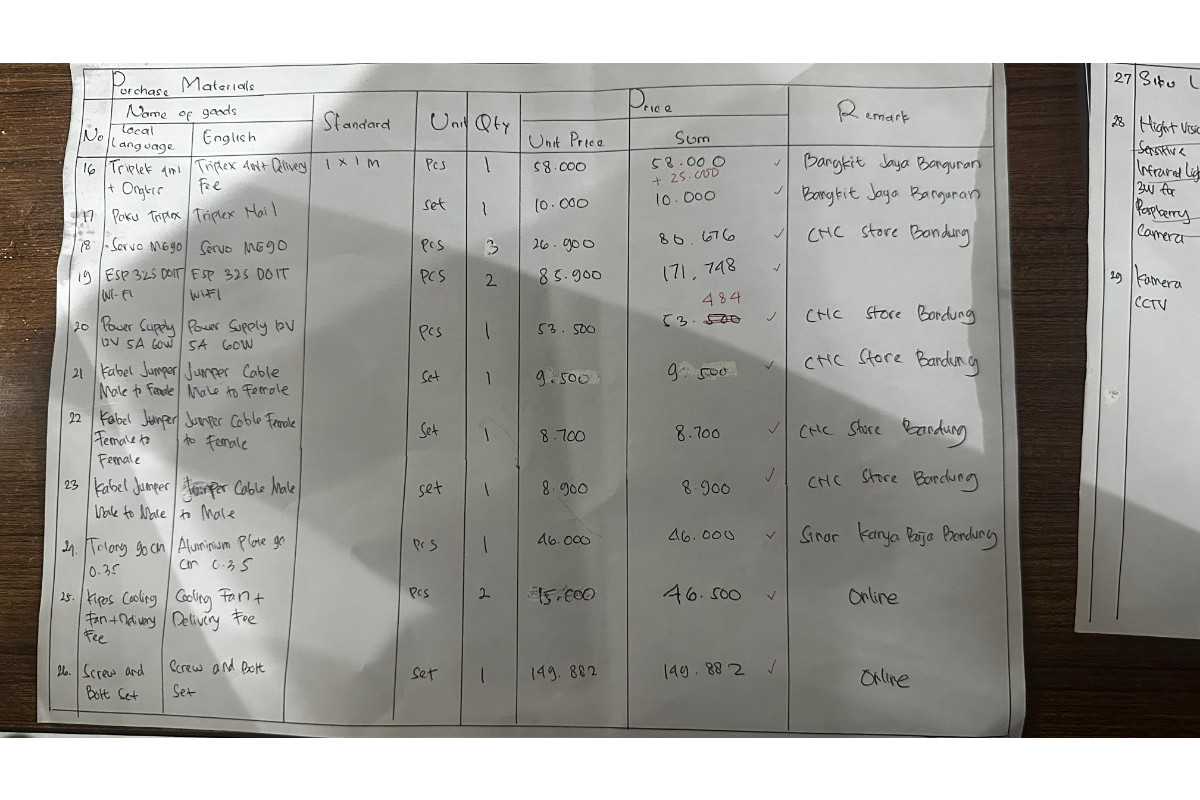 Purchase Materials
Name of goods
Price
No
Local Language
English
Standard
Unit
Qty
Unit Price
Sum
Remark
16 Triplek 4ml Triplex 4ml + Delivery 1 x 1 m Pcs 1 58.000 58.000 ✓ Bangkit Jaya Bangunan
+ Ongkir Fee + 25.000
17 Paku Triplex Triplex Nail set 1 10.000 10.000 ✓ Bangkit Jaya Bangunan
18 Servo MG90 Servo MG90 Pcs 3 26.900 80.676 ✓ CNC Store Bandung
19 ESP 32S DOIT ESP 32S DOIT Pcs 2 85.900 171.748 ✓
Wi-Fi WIFI
484
20 Power Supply Power Supply 12V Pcs 1 53.500 53.500 ✓ CNC Store Bandung
12V 5A 60W 5A 60W
21 Kabel Jumper Jumper Cable Set 1 9.500 9.500 ✓ CNC Store Bandung
Male to Female Male to Female
22 Kabel Jumper Jumper Cable Female Set 1 8.700 8.700 ✓ CNC Store Bandung
Female to to Female
Female
23 Kabel Jumper Jumper Cable Male set 1 8.900 8.900 ✓ CNC Store Bandung
Male to Male to Male
24. Tolang 90 cm Aluminium Plate 90 Pcs 1 46.000 46.000 ✓ Sinar Karya Baja Bandung
0.35 cm 0.35
25. Kipas Cooling Cooling Fan + Pcs 2 46.500 ✓ Online
Fan + Delivery Delivery Fee
Fee
26. Screw and Screw and Bolt set 1 149.882 149.882 ✓ Online
Bolt Set Set
27
28
Sensitive
Infrared
3W for
Raspberry
Camera
29 Kamera
CCTV